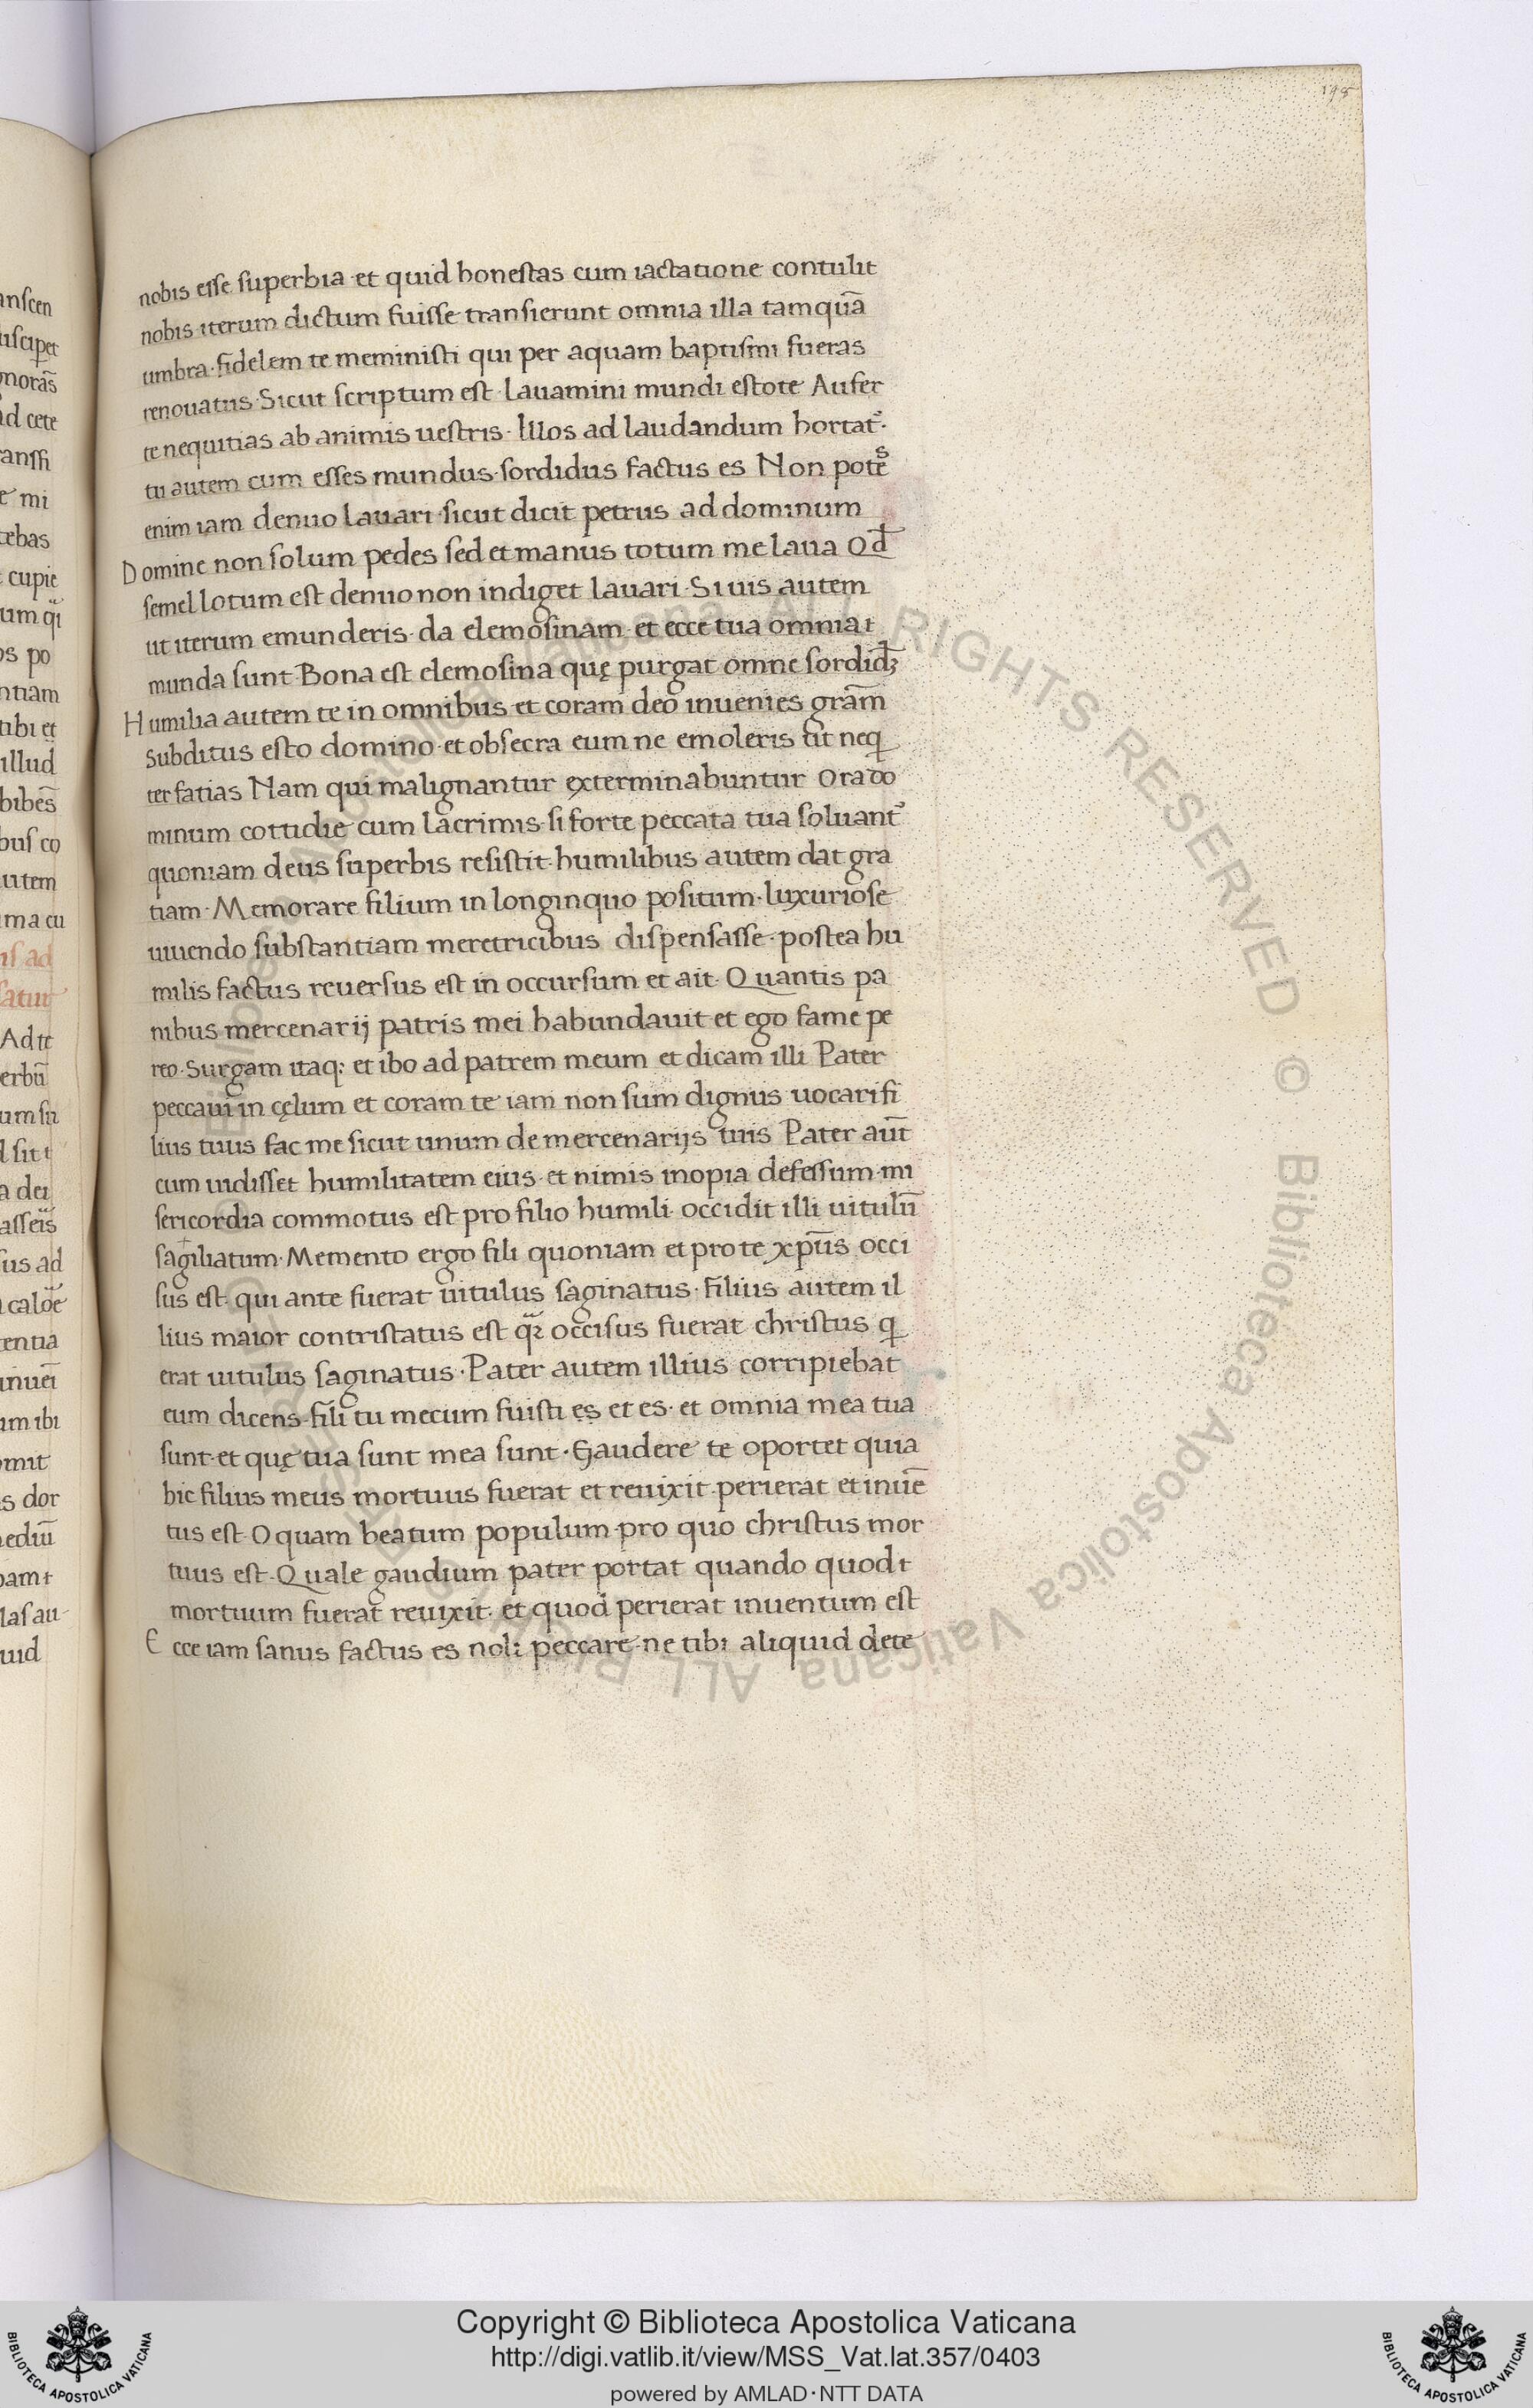 198
nobis esse superbia et quid honestas cum iactatione contulit
nobis iterum dictum fuisse transierunt omnia illa tamquā
umbra· fidelem te meministi qui per aquam baptismi fueras
renouatus· Sicut scriptum est· Lauamini mundi estote Aufer
te nequitias ab animis uestris· Illos ad laudandum hortat᷑·
tu autem cum esses mundus· sordidus factus es Non potes
enim iam denuo lauari· sicut dicit petrus ad dominum
Domine non solum pedes sed et manus totum me laua Qd̄
semel lotum est denuo non indiget lauari· Si uis autem
ut iterum emunderis· da elemosinam· et ecce tua omnia
munda sunt· Bona est elemosina quę purgat omne sordid̄ꝫ
Humilia autem te in omnibus et coram deo inuenies gram̄
Subditus esto domino· et obsecra eum ne emoleris ut neq̄
ter fatias Nam qui malignantur exterminabuntur Ora do
minum cottidie cum lacrimis· si forte peccata tua soluant᷑
quoniam deus superbis resistit· humilibus autem dat gra
tiam· Memorare filium in longinquo positum· luxuriose
uiuendo substantiam meretricibus dispensasse· postea hu
milis factus reuersus est in occursum et ait· Quantis pa
nibus mercenarij patris mei habundauit et ego fame pe
reo· Surgam itaq: et ibo ad patrem meum et dicam illi Pater
peccaui in cęlum et coram te iam non sum dignus uocari fi
lius tuus fac me sicut unum de mercenarijs tuis Pater aūt
cum uidisset humilitatem eius· et nimis inopia defessum· mi
sericordia commotus est pro filio humili· occidit illi uitulū
sagiliatum· Memento ergo fili quoniam et pro te xp̄us occi
sus est· qui ante fuerat uitulus saginatus· Filius autem il
lius maior contristatus est qr̄ occisus fuerat christus q
erat uitulus saginatus· Pater autem illius corripiebat
eum dicens· fili tu mecum fuisti es et es· et omnia mea tua
sunt· et quę tua sunt mea sunt· Gaudere te oportet quia
hic filius meus mortuus fuerat et reuixit· perierat et inuē
tus est· O quam beatum populum· pro quo christus mor
tuus est· Quale gaudium pater portat quando quod
mortuum fuerat reuixit· et quod perierat inuentum est
Ecce iam sanus factus es noli peccare· ne tibi aliquid dete
Copyright © Biblioteca Apostolica Vaticana
http://digi.vatlib.it/view/MSS_Vat.lat.357/0403
powered by AMLAD·NTT DATA